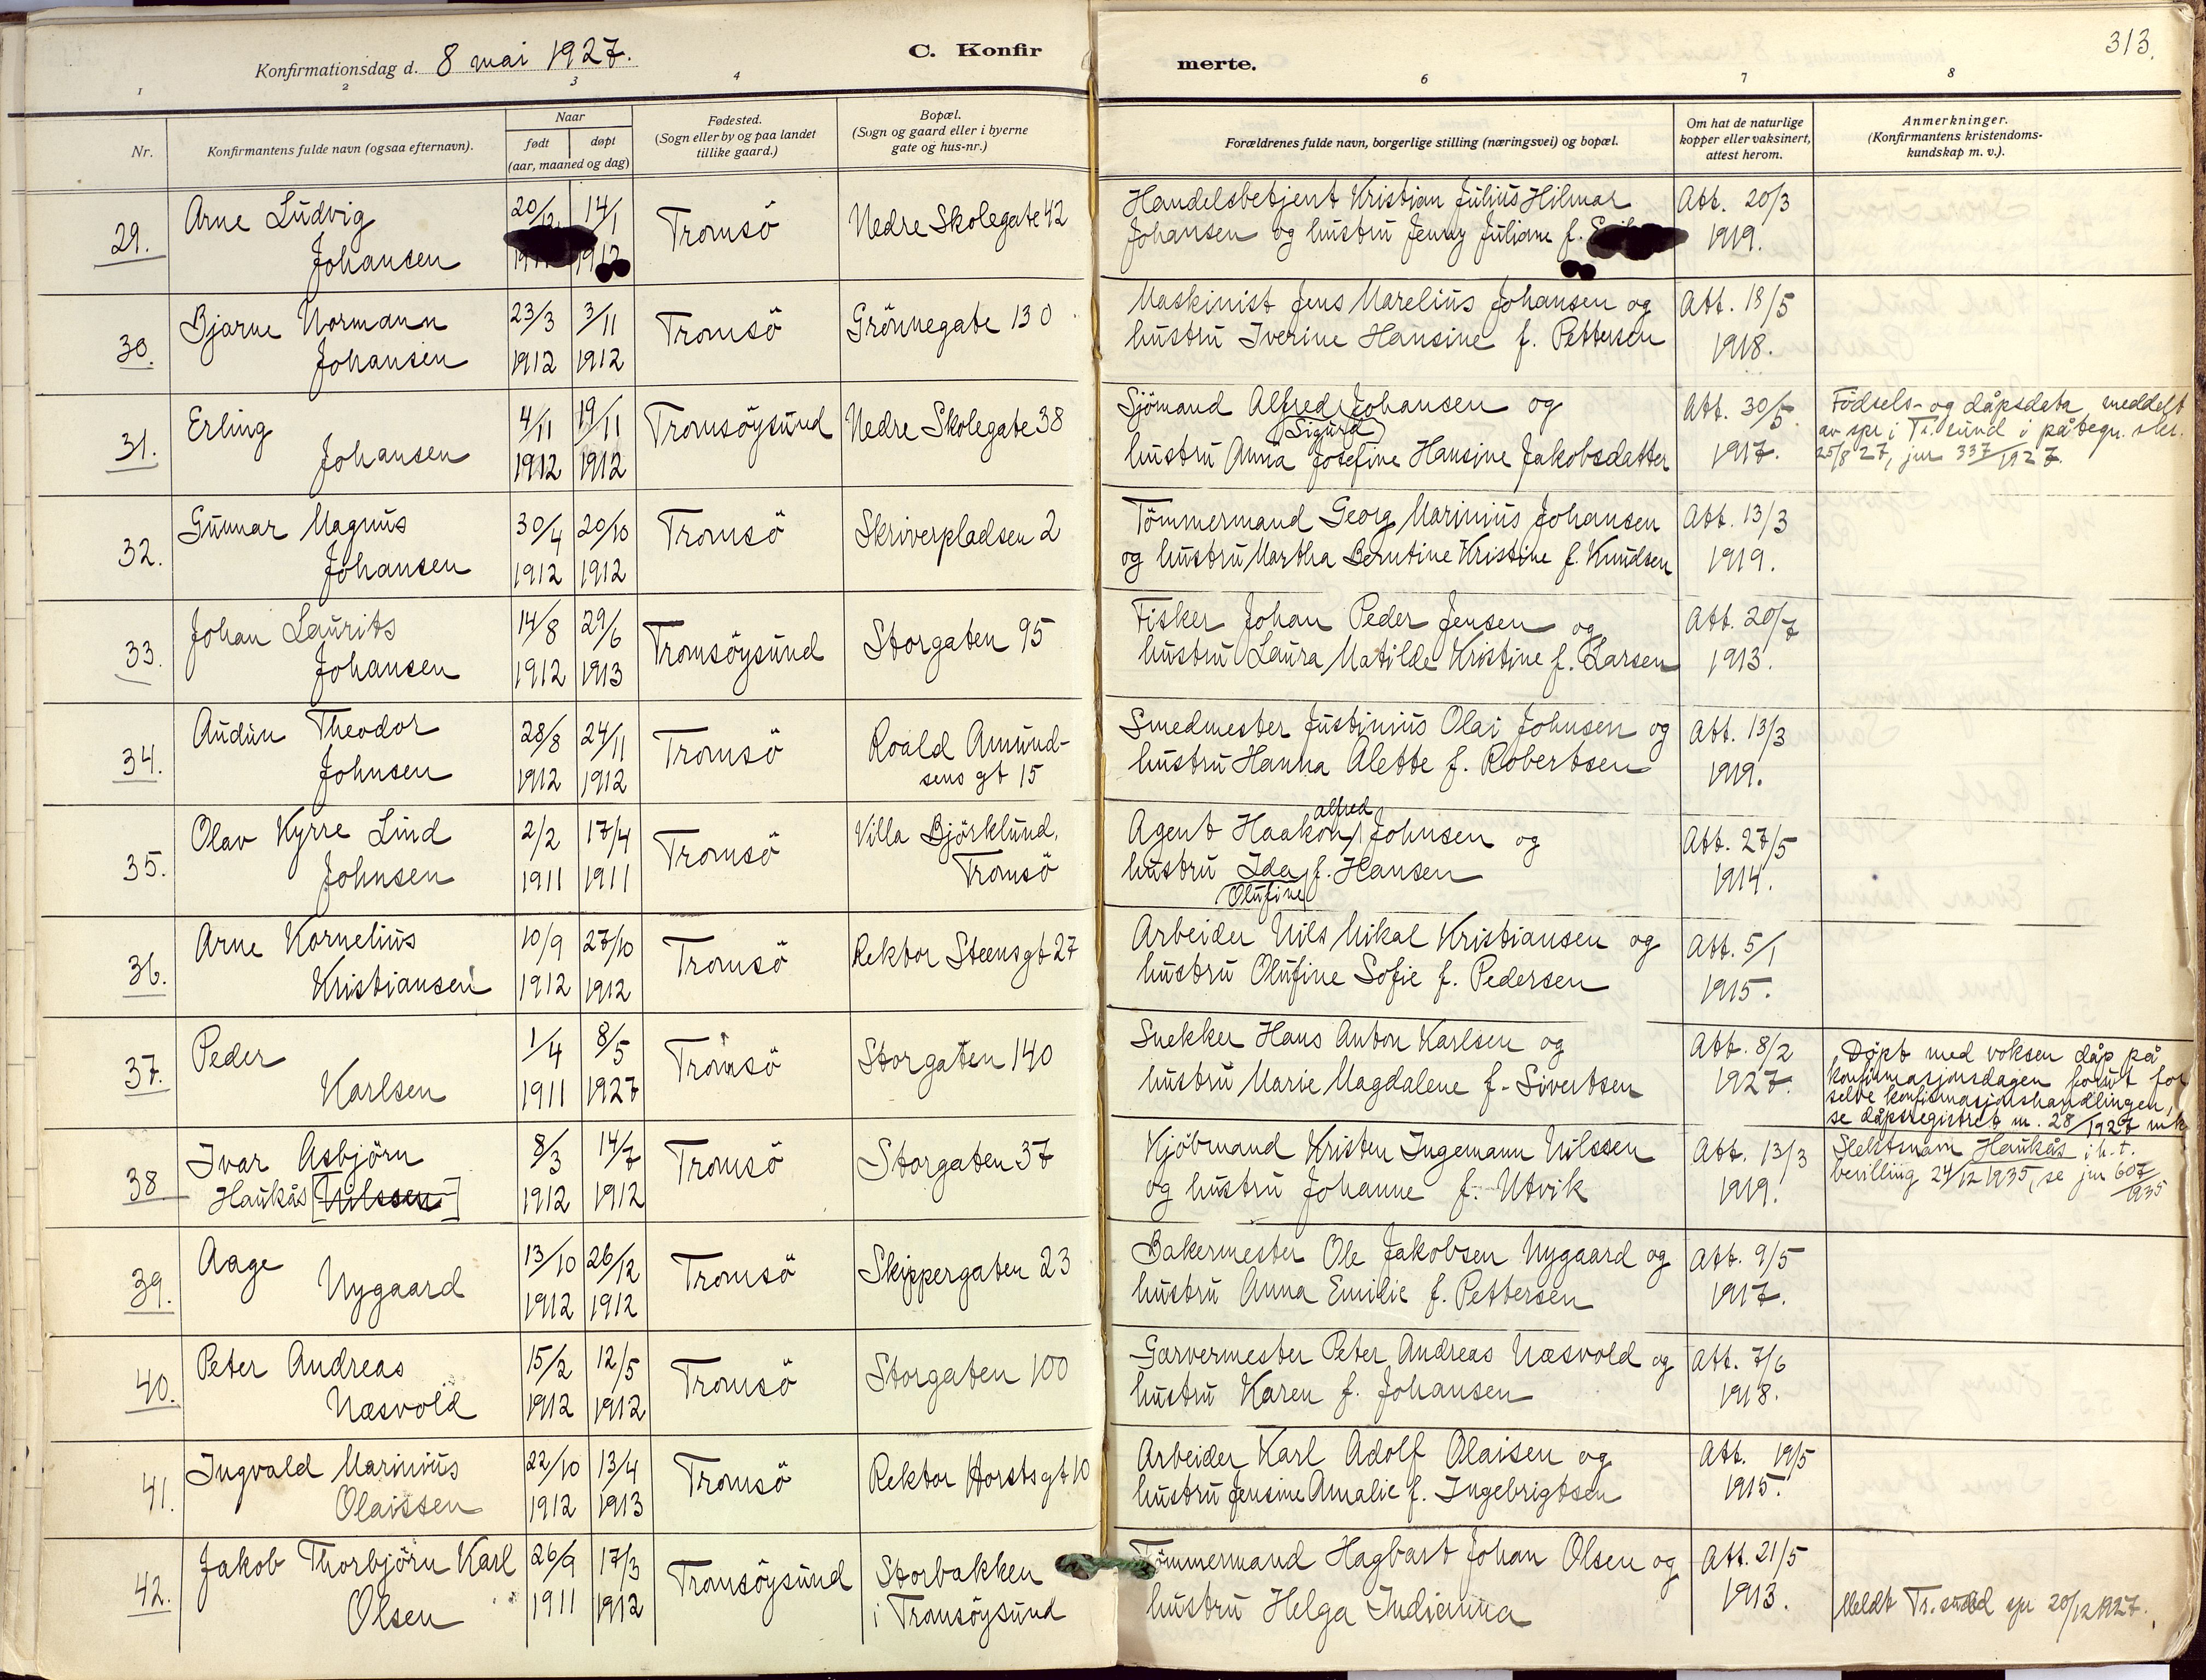 313.
Konfirmationsdag d. 8 mai 1927.
C. Konfirmerte.
1 2 3 4 6 7 8
Nr.
Konfirmantens fulde navn (ogsaa efternavn).
Naar
født
døpt
(aar, maaned og dag)
Fødested.
(Sogn eller by og paa landet
tillike gaard.)
Bopæl.
(Sogn og gaard eller i byerne
gate og hus-nr.)
Forældrenes fulde navn, borgerlige stilling (næringsvei) og bopæl.
Om hat de naturlige
kopper eller vaksinert,
attest herom.
Anmerkninger.
(Konfirmantens kristendoms-
kundskap m. v.).
29. Arne Ludvig 20/12 14/1 Tromsö Nedre Skolegate 42 Handelsbetjent Kristian Julius Hilmar Att. 20/3
Johansen 1912 Johansen og hustru Jenny Juliane f. 1919.
30. Bjarne Normann 23/3 3/11 Tromsö Grönnegate 130 Maskinist Jens Marelius Johansen og Att. 18/5
Johansen 1912 1912 hustru Iverine Hansine f. Pettersen 1918.
31. Erling 4/11 19/11 Tromsöysund Nedre Skolegate 38 Sjömand Alfred Sigurd Johansen og Att. 30/5. Födsels- og dåpsdata meddelt
Johansen 1912 1912 hustru Anna Josefine Hansine Jakobsdatter 1917. av spr i Tr.sund i påtegn.
25/8 27, jur 337/1927.
32. Gunnar Magnus 30/4 20/10 Tromsö Skriverpladsen 2 Tömmermand Georg Marinius Johansen Att. 13/3
Johansen 1912 1912 og hustru Martha Berntine Kristine f. Knudsen 1919.
33. Johan Laurits 14/8 29/6 Tromsöysund Storgaten 95 Fisker Johan Peder Jensen og Att. 20/7
Johansen 1912 1913 hustru Laura Matilde Kristine f. Larsen 1913.
34. Audun Theodor 28/8 24/11 Tromsö Roald Amund- Smedmester Justinius Olai Johnsen og Att. 13/3
Johnsen 1912 1912 sens gt 15 hustru Hanna Alette f. Robertsen 1919.
35. Olav Kyrre Lind 2/2 17/4 Tromsö Villa Björklund, Agent Haakon Alfred Johnsen og Att. 27/5
Johnsen 1911 1911 Tromsö hustru Ida Olufine f. Hansen 1914.
36. Arne Kornelius 10/9 27/10 Tromsö Rektor Steensgt 27 Arbeider Nils Mikal Kristiansen og Att. 5/1
Kristiansen 1912 1912 hustru Olufine Sofie f. Pedersen 1915.
37. Peder 1/4 8/5 Tromsö Storgaten 140 Snekker Hans Anton Karlsen og Att. 8/2 Döpt med voksen dåp på
Karlsen 1911 1927 hustru Marie Magdalene f. Sivertsen 1927. konfirmasjonsdagen forut for
selve konfirmasjonshandlingen,
se dåpsregistret nr. 28/1927 mk
38 Ivar Asbjörn 8/3 14/7 Tromsö Storgaten 37 Kjöbmand Kristen Ingemann Nilssen Att. 13/3 Slektsnavn Haukås i h. t.
Haukås [Nilssen] 1912 1912 og hustru Johanne f. Utvik 1919. bevilling 24/12 1935, se jur 607/1935
39. Aage 13/10 26/12 Tromsö Skippergaten 23 Bakermester Ole Jakobsen Nygaard og Att. 9/5
Nygaard 1912 1912 hustru Anna Emilie f. Pettersen 1917.
40. Peter Andreas 15/2 12/5 Tromsö Storgaten 100 Garvermester Peter Andreas Næsvold og Att. 7/6
Næsvold 1912 1912 hustru Karen f. Johansen 1918.
41. Ingvald Marinius 22/10 13/4 Tromsö Rektor Horstsgt 10 Arbeider Karl Adolf Olaisen og Att. 19/5
Olaissen 1912 1913 hustru Jensine Amalie f. Ingebrigtsen 1915.
42. Jakob Thorbjörn Karl 26/9 17/3 Tromsöysund Storbakken Tömmermand Hagbart Johan Olsen og Att. 21/5
Olsen 1911 1912 i Tromsöysund hustru Helga Indianna 1913. Meldt Tr.sund spr 20/12 1927.